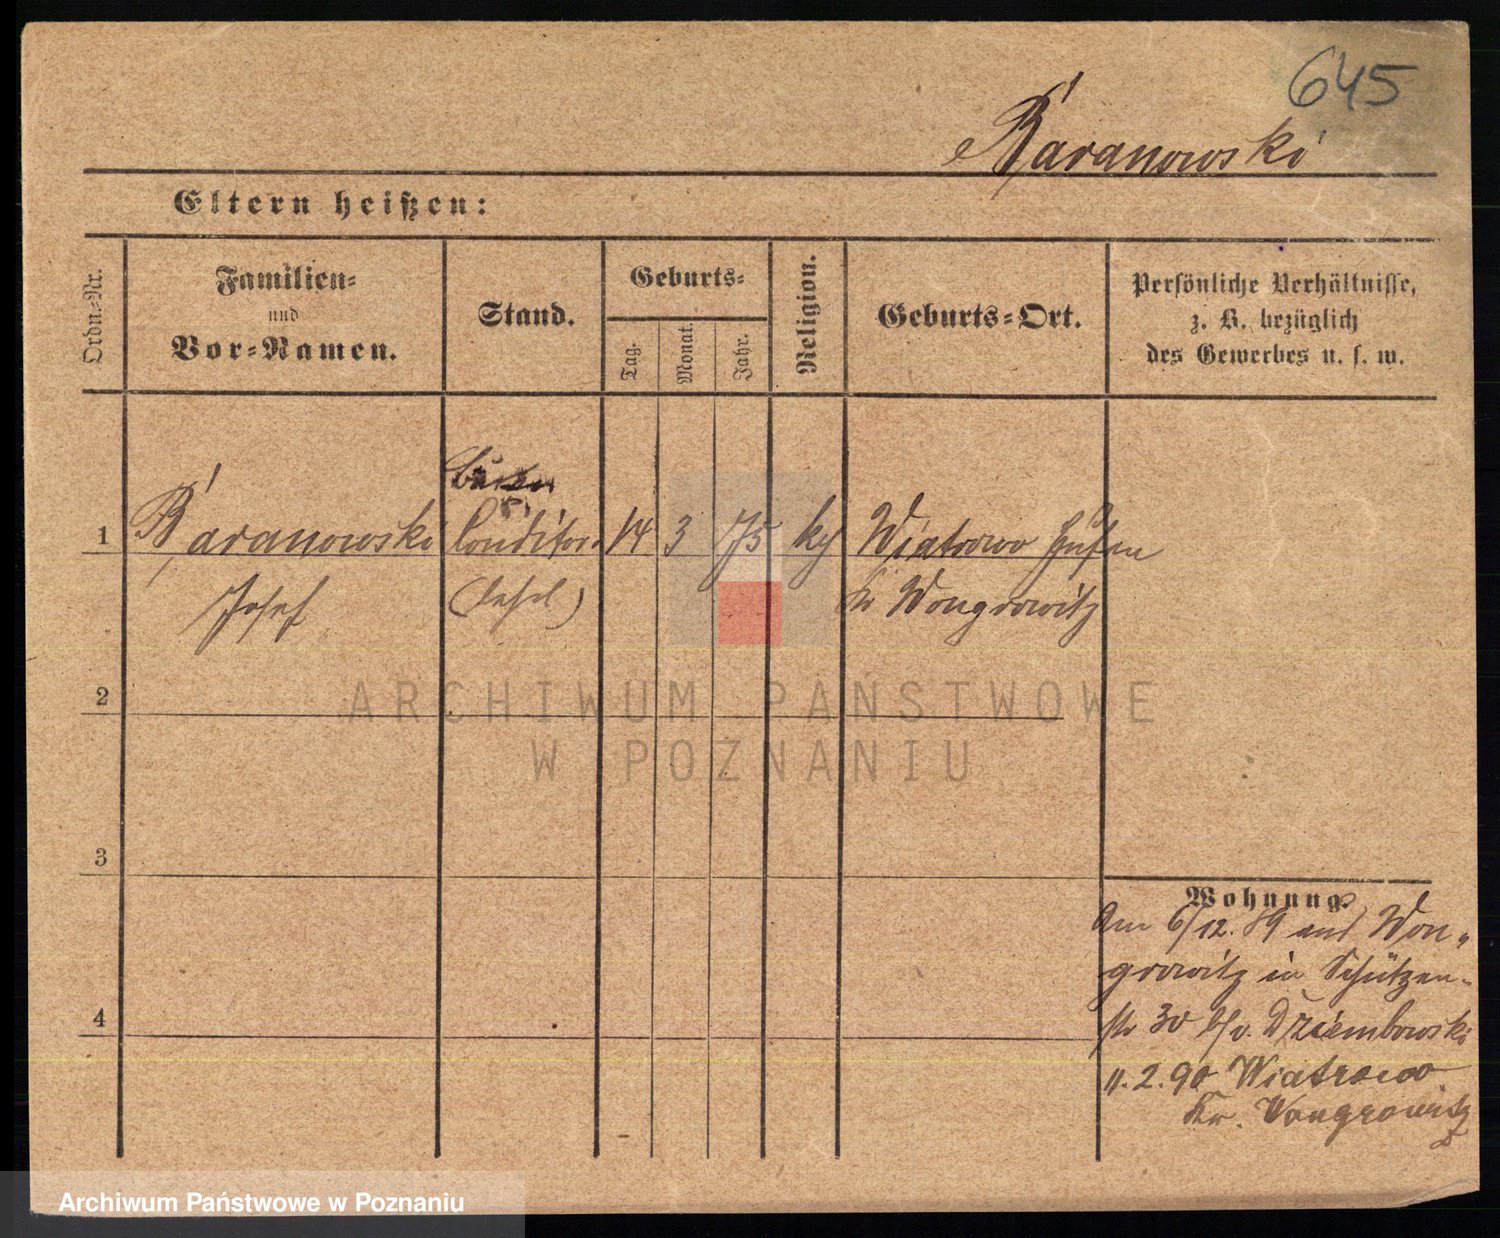 645
Baranowski
Eltern heißen:
Ordn.-Nr.
Familien-
und
Vor-Namen.
Stand.
Geburts-
Tag.
Monat.
Jahr.
Religion.
Geburts-Ort.
Persönliche Verhältnisse,
z. B. bezüglich
des Gewerbes u. s. w.
1 Baranowski Conditor 14 3 75 Wiatrowo
Josef Kr Wongrowitz
2
ARCHIWUM PAŃSTWOWE
W POZNANIU
3
Wohnung.
Am 6/12. 89 aus Won-
growitz in Schützen-
4
str 30 b/v. Dziembowski
11.2.90 Wiatrowo
Kr. Wongrowitz
Archiwum Państwowe w Poznaniu